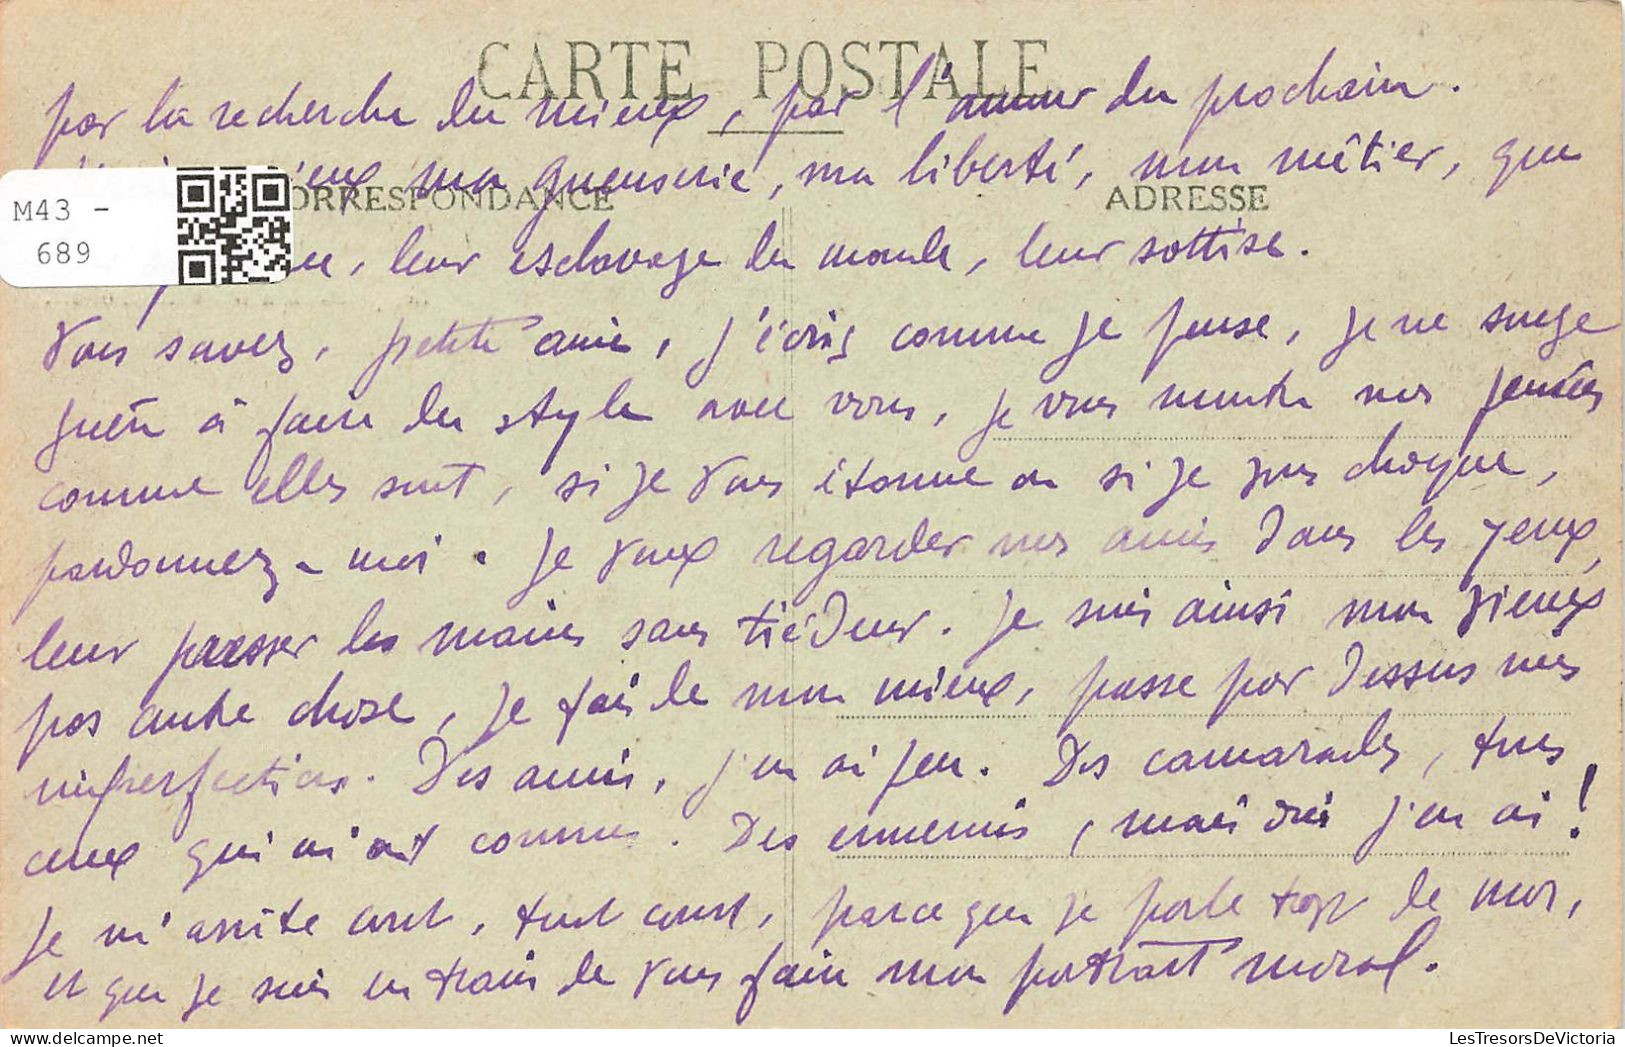 CARTE POSTALE
par la recherche du mieux, par l'amour du prochain.
mieux ma gueuserie, ma liberté, mon métier, que
CORRESPONDANCE
ADRESSE
M43 -
689
leur esclavage du monde, leur sottise.
Vous savez, petite amie, j'écris comme je pense, je ne songe
guère à faire du style avec vous, je vous montre mes pensées
comme elles sont, si je vous étonne ou si je vous choque,
pardonnez-moi. Je veux regarder mes amis dans les yeux,
leur presser les mains sans tiédeur. Je suis ainsi mon vieux
pas autre chose, je fais de mon mieux, passe par dessus mes
imperfections. Des amis, j'en ai peu. Des camarades, tous
ceux qui m'ont connu. Des ennemis, mais oui j'en ai !
Je m'arrête court, tout court, parce que je parle trop de moi,
et que je suis en train de vous faire mon portrait moral.
LesTresorsDeVictoria